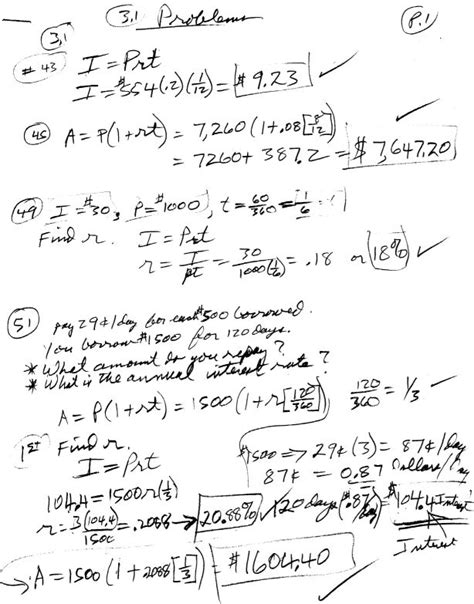 3.1 Problems P.1
3,1
#43 I = Prt
I = $554(.2)(1/12) = $9.23 ✓
45 A = P(1+rt) = 7,260(1+.08[8/12])
= 7260 + 387.2 = $7,647.20
49 I = $30, P = $1000, t = 60/360 = 1/6
Find r. I = Prt
r = I/pt = 30/1000(1/6) = .18 or 18% ✓
51 pay 29¢/day for each $500 borrowed.
You borrow $1500 for 120 days.
* What amount do you repay?
* What is the annual interest rate?
A = P(1+rt) = 1500(1+r[120/360]) 120/360 = 1/3 ✓
1st Find r. $1500 => 29¢(3) = 87¢/day
I = Prt 87¢ = 0.87 Dollars/Day
104.4 = 1500r(1/3)
r = 3(104.4)/1500 = .2088 → 20.88% ✓ 120 days($.87/day) = $104.4 Interest
Interest
→ A = 1500(1+.2088[1/3]) = $1604.40